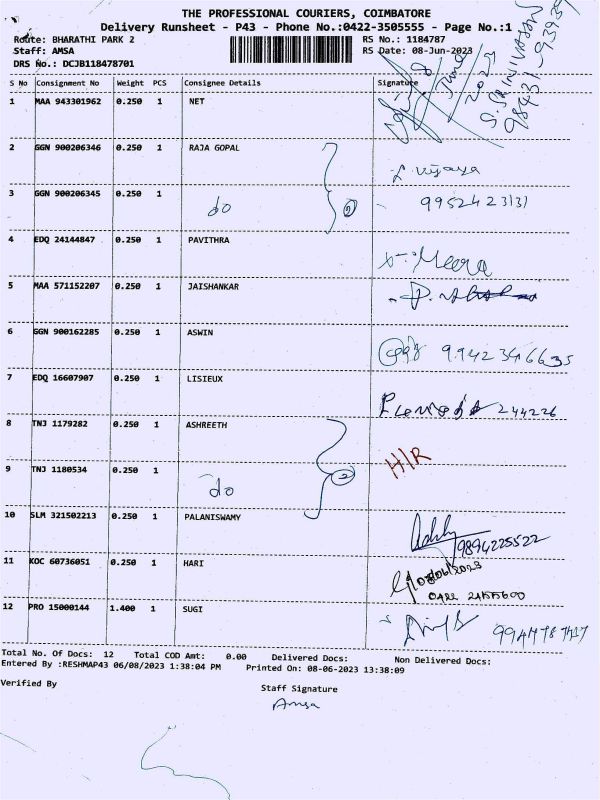 THE PROFESSIONAL COURIERS, COIMBATORE
Delivery Runsheet - P43 - Phone No.:0422-3505555 - Page No.:1
Route: BHARATHI PARK 2 RS No.: 1184787
Staff: AMSA RS Date: 08-Jun-2023
DRS No.: DCJB118478701
S No Consignment No Weight PCS Consignee Details Signature
8 June 2023
S. SRINIVASAN
1 MAA 943301962 0.250 1 NET
2 GGN 900206346 0.250 1 RAJA GOPAL L. vijaya
3 GGN 900206345 0.250 1 do 2 9952423131
4 EDQ 24144847 0.250 1 PAVITHRA Meera
5 MAA 571152207 0.250 1 JAISHANKAR
6 GGN 900162285 0.250 1 ASWIN 9942346635
7 EDQ 16607907 0.250 1 LISIEUX 244226
8 TNJ 1179282 0.250 1 ASHREETH H/R
9 TNJ 1180534 0.250 1 do 2
10 SLM 321502213 0.250 1 PALANISWAMY 9894225522
11 KOC 60736051 0.250 1 HARI 08/06/2023
12 PRO 15000144 1.400 1 SUGI
Total No. Of Docs: 12 Total COD Amt: 0.00 Delivered Docs: Non Delivered Docs:
Entered By :RESHMAP43 06/08/2023 1:38:04 PM Printed On: 08-06-2023 13:38:09
Verified By Staff Signature
Amsa